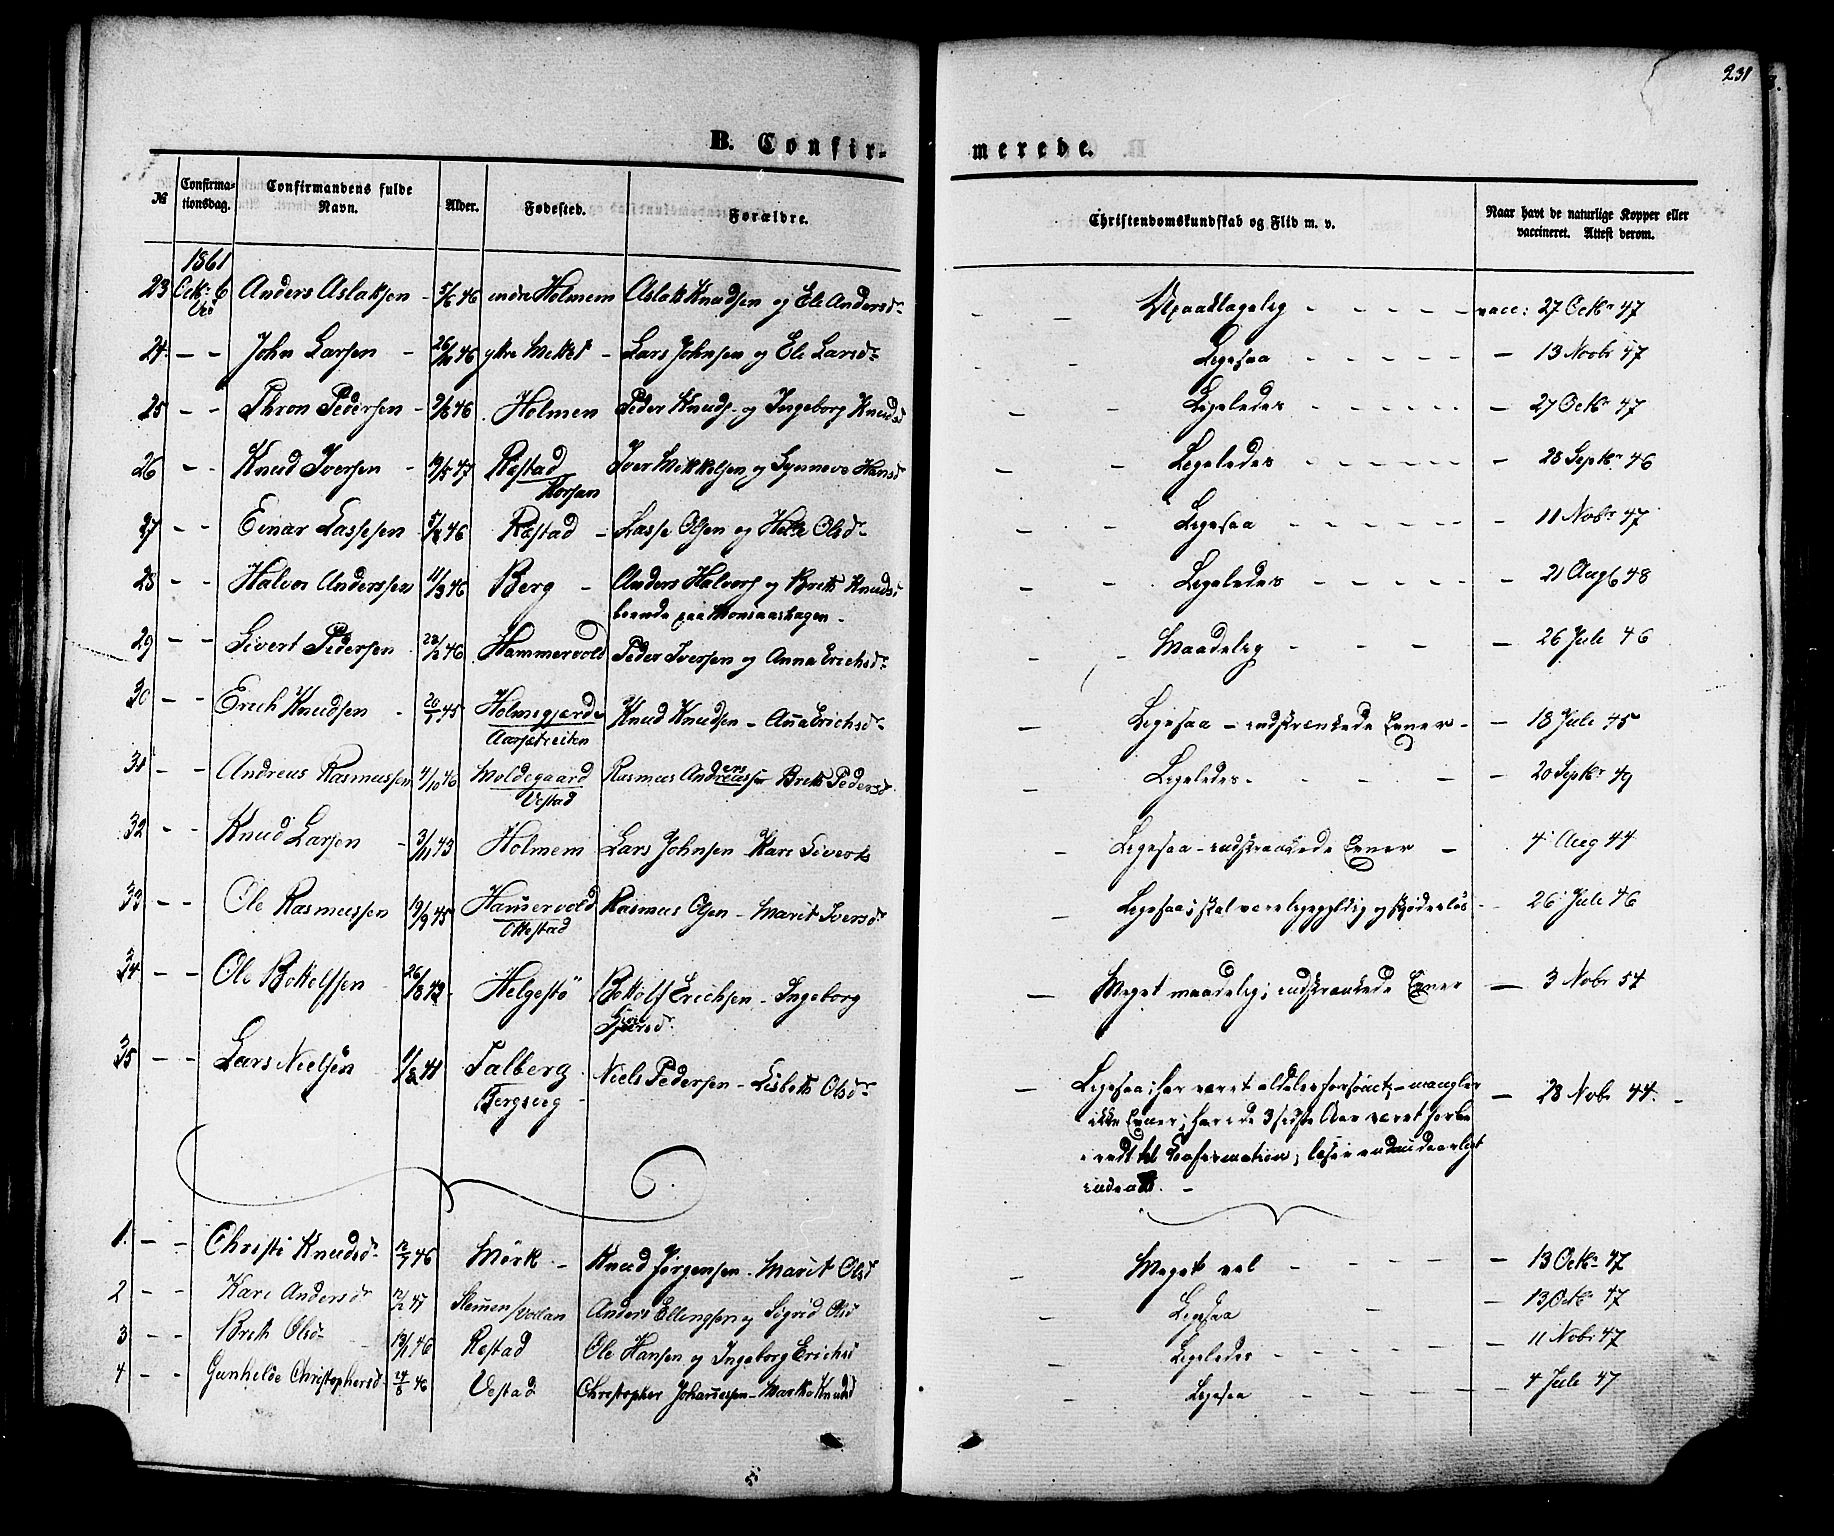 231
B. Confirmerede.
№ Confirmationsdag. Confirmandens fulde Navn. Alder. Fødested. Forældre. Christendomskundskab og Flid m. v. Naar havt de naturlige Kopper eller vaccineret. Attest derom.
1861
23 Octr 6 Anders Aslaksen - 5/6 46 indre Holmem Aslak Knudsen og Ele Andersdr Upaaklagelig - - - - vacc: 27 Octbr 47
24 - - John Larsen - 26/10 46 ytre Mittet - Lars Johnsen og Ele Larsdr Ligesaa - - - - - 13 Novbr 47
25 - - Thron Pedersen - 9/6 46 Holmen Peder Knuds. og Ingeborg Knudsd Ligeledes - - - - - 27 Octbr 47
26 - - Knud Iversen - 19/5 47 Røstad Iver Mikkelsen og Synneve Hansd Ligeledes - - - - - 28 Septbr 46
Korsan
27 - - Einar Lassesen 5/8 46 Røstad - Lasse Olsen og Olsdr Ligesaa - - - - - 11 Nobr 47
28 - - Halvor Anderssen 11/3 46 Berg - Anders Halvors og Brith Knudsd Ligeledes - - - - - 21 Aug 48
boende paa Monsaashagen -
29 - - Sivert Pedersen 28/3 46 Hammervold Peder Iversen og Anna Erichsdr Maadelig - - - - 26 Juli 46
30 - - Erich Knudsen - 20/5 45 Holmegjærde Knud Knudsen - Aña Erichsdr Ligesaa - indskrænkede Evner - - 18 Juli 45
Aarsetreiten
31 - - Andreas Rasmussen 4/10 46 Moldegaard Rasmus Anderssen Brith Pedersd Ligeledes - - - - 20 Septbr 49
Vestad
32 - - Knud Larsen - 3/11 43 Holmem Lars Johnsen - Kari Siverts Ligesaa - indskrænkede Evner - 4 Aug 44
33 - - Ole Rasmussen 19/9 45 Ham̃ervold Rasmus Olsen - Marit Iversdr Ligesaa; skal være ligegyldig og skjødesløs - 26 Juli 46
Ottestad
34 - - Ole Bottolfsen 26/8 43 Helgestø Bottolf Erichsen - Ingeborg Meget maadelig; indskrænkede Evner - 3 Nobr 54
35 - - Lars Nielsen Talberg Niels Pedersen - Lisbeth Olsdr Ligesaa; har været aldeles forsømt - mangler - 28 Nobr 44
Bergsvig - ikke Evner; har i de 3 sidste Aar været forbe
redt til Confirmation; læser endnu daarligt
indenad. -
1. - - Christi Knudsdr 12/7 46 Mörk - Knud Jørgensen - Marit Olsd Meget vel - - - - 13 Octbr 47
2 - - Kari Andersdr 12/2 47 Anders Ellingsen og Sigrid Olsd Ligesaa - - - 13 Octbr 47
3 - - Brith Olsdr 13/1 46 Røstad Ole Hansen og Ingeborg Erichsd Ligeledes - - - - 11 Nobr 47
4 - - Gunhilde Christophersd 24/8 46 Vestad Christopher Johañesen - Knudsd Ligesaa - - - - 4 Juli 47